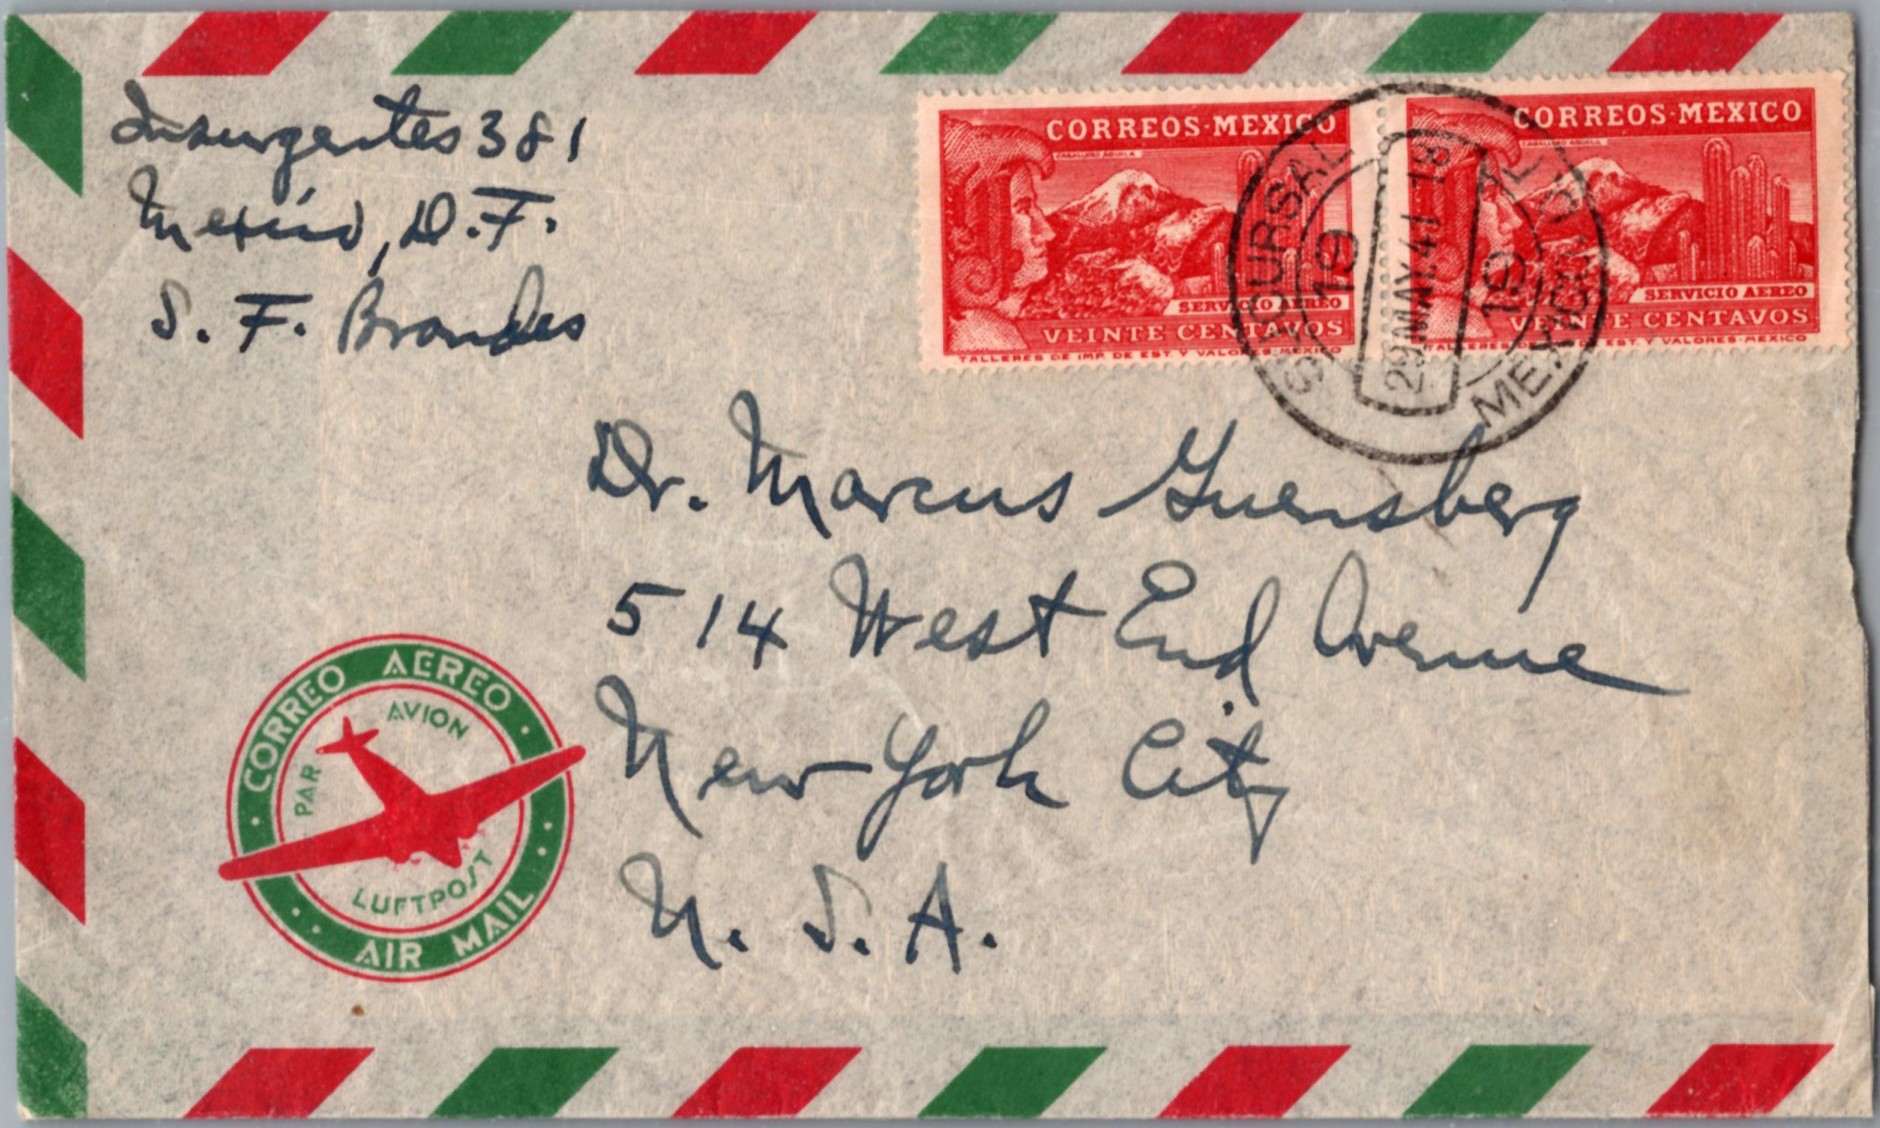 Insurgentes 381
Mexico, D.F.
S. F. Brandes
CORREOS·MEXICO
CABALLERO AGUILA
SERVICIO AEREO
VEINTE CENTAVOS
TALLERES DE IMP. DE EST. Y VALORES-MEXICO
CORREOS·MEXICO
SERVICIO AEREO
VEINTE CENTAVOS
TALLERES EST. Y VALORES-MEXICO
SUCURSAL
19
29MAY.41 18
19
MEXICO
Dr. Marcus Guensberg
514 West End Avenue
New York City
U. S. A.
CORREO AEREO
PAR AVION
LUFTPOST
AIR MAIL